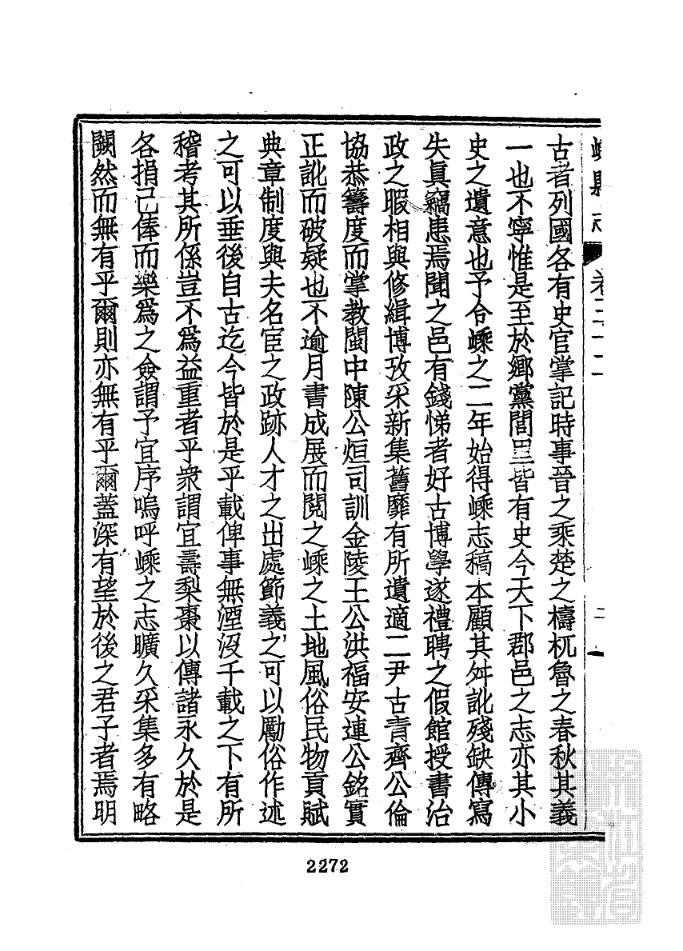 嵊縣志 卷三十二 二
古者列國各有史官掌記時事晉之乘楚之檮杌魯之春秋其義
一也不寧惟是至於鄉黨閭里皆有史今天下郡邑之志亦其小
史之遺意也予令嵊之二年始得嵊志稿本顧其舛訛殘缺傳寫
失真竊患焉聞之邑有錢悌者好古博學遂禮聘之假館授書治
政之暇相與修緝博攷采新集舊靡有所遺適二尹古青齊公倫
協恭籌度而掌教閩中陳公烜司訓金陵王公洪福安連公銘實
正訛而破疑也不逾月書成展而閱之嵊之土地風俗民物貢賦
典章制度與夫名宦之政跡人才之出處節義之可以勵俗作述
之可以垂後自古迄今皆於是乎載俾事無湮沒千載之下有所
稽考其所係豈不為益重者乎衆謂宜壽梨棗以傳諸永久於是
各捐己俸而樂為之僉謂予宜序嗚呼嵊之志曠久采集多有略
闕然而無有乎爾則亦無有乎爾蓋深有望於後之君子者焉明
2272